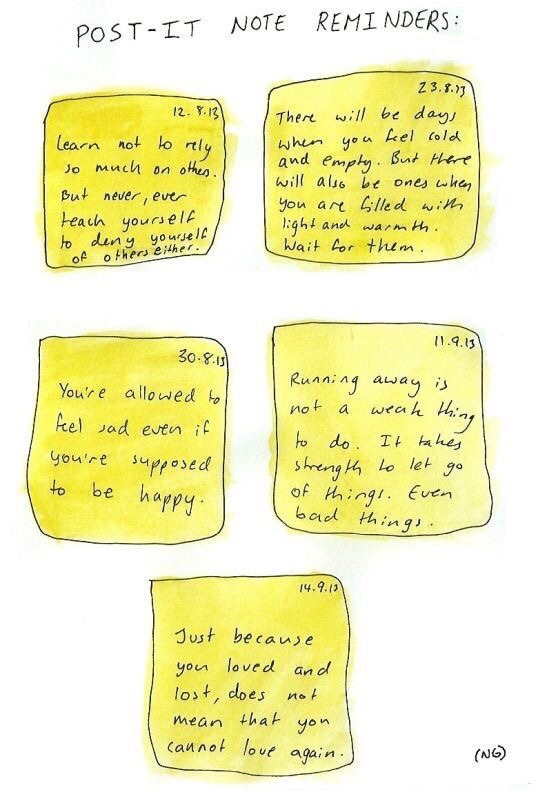 POST-IT NOTE REMINDERS:
12.8.13
Learn not to rely
so much on others.
But never, ever
teach yourself
to deny yourself
of others either.
23.8.13
There will be days
when you feel cold
and empty. But there
will also be ones when
you are filled with
light and warmth.
Wait for them.
30.8.13
You're allowed to
feel sad even if
you're supposed
to be happy.
11.9.13
Running away is
not a weak thing
to do. It takes
strength to let go
of things. Even
bad things.
14.9.13
Just because
you loved and
lost, does not
mean that you
cannot love again.
(NG)